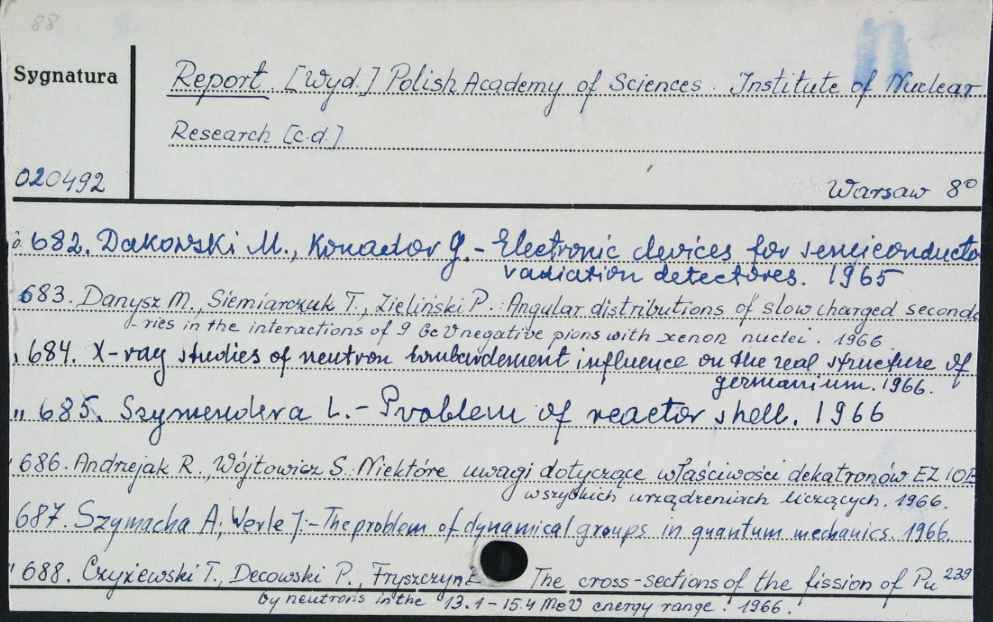 88
Sygnatura
Report. [Wyd.] Polish Academy of Sciences. Institute of Nuclear
Research [c.d.]
020492
Warsaw 8°
682. Dakowski M., Konador G. - Electronic devices for semiconducto
radiation detectores. 1965
683. Danysz M., Siemiarczuk T., Zieliński P.: Angular distributions of slow charged seconda
-ries in the interactions of 9 GeV negative pions with xenon nuclei. 1966
" 684. X-ray studies of neutron bombardement influence on the real structure of
germanium. 1966.
" 685. Szymendera L. - Problem of reactor shell. 1966
" 686. Andrzejak R., Wójtowicz S.: Niektóre uwagi dotyczące właściwości dekatronów EZ 10B
w szybkich urządzeniach liczących. 1966.
" 687. Szymacha A; Werle J: - The problem of dynamical groups in quantum mechanics. 1966.
" 688. Czyżewski T., Decowski P., Fryszczyn E The cross-sections of the fission of Pu 239
by neutrons in the 13.1-15.4 MeV energy range. 1966.